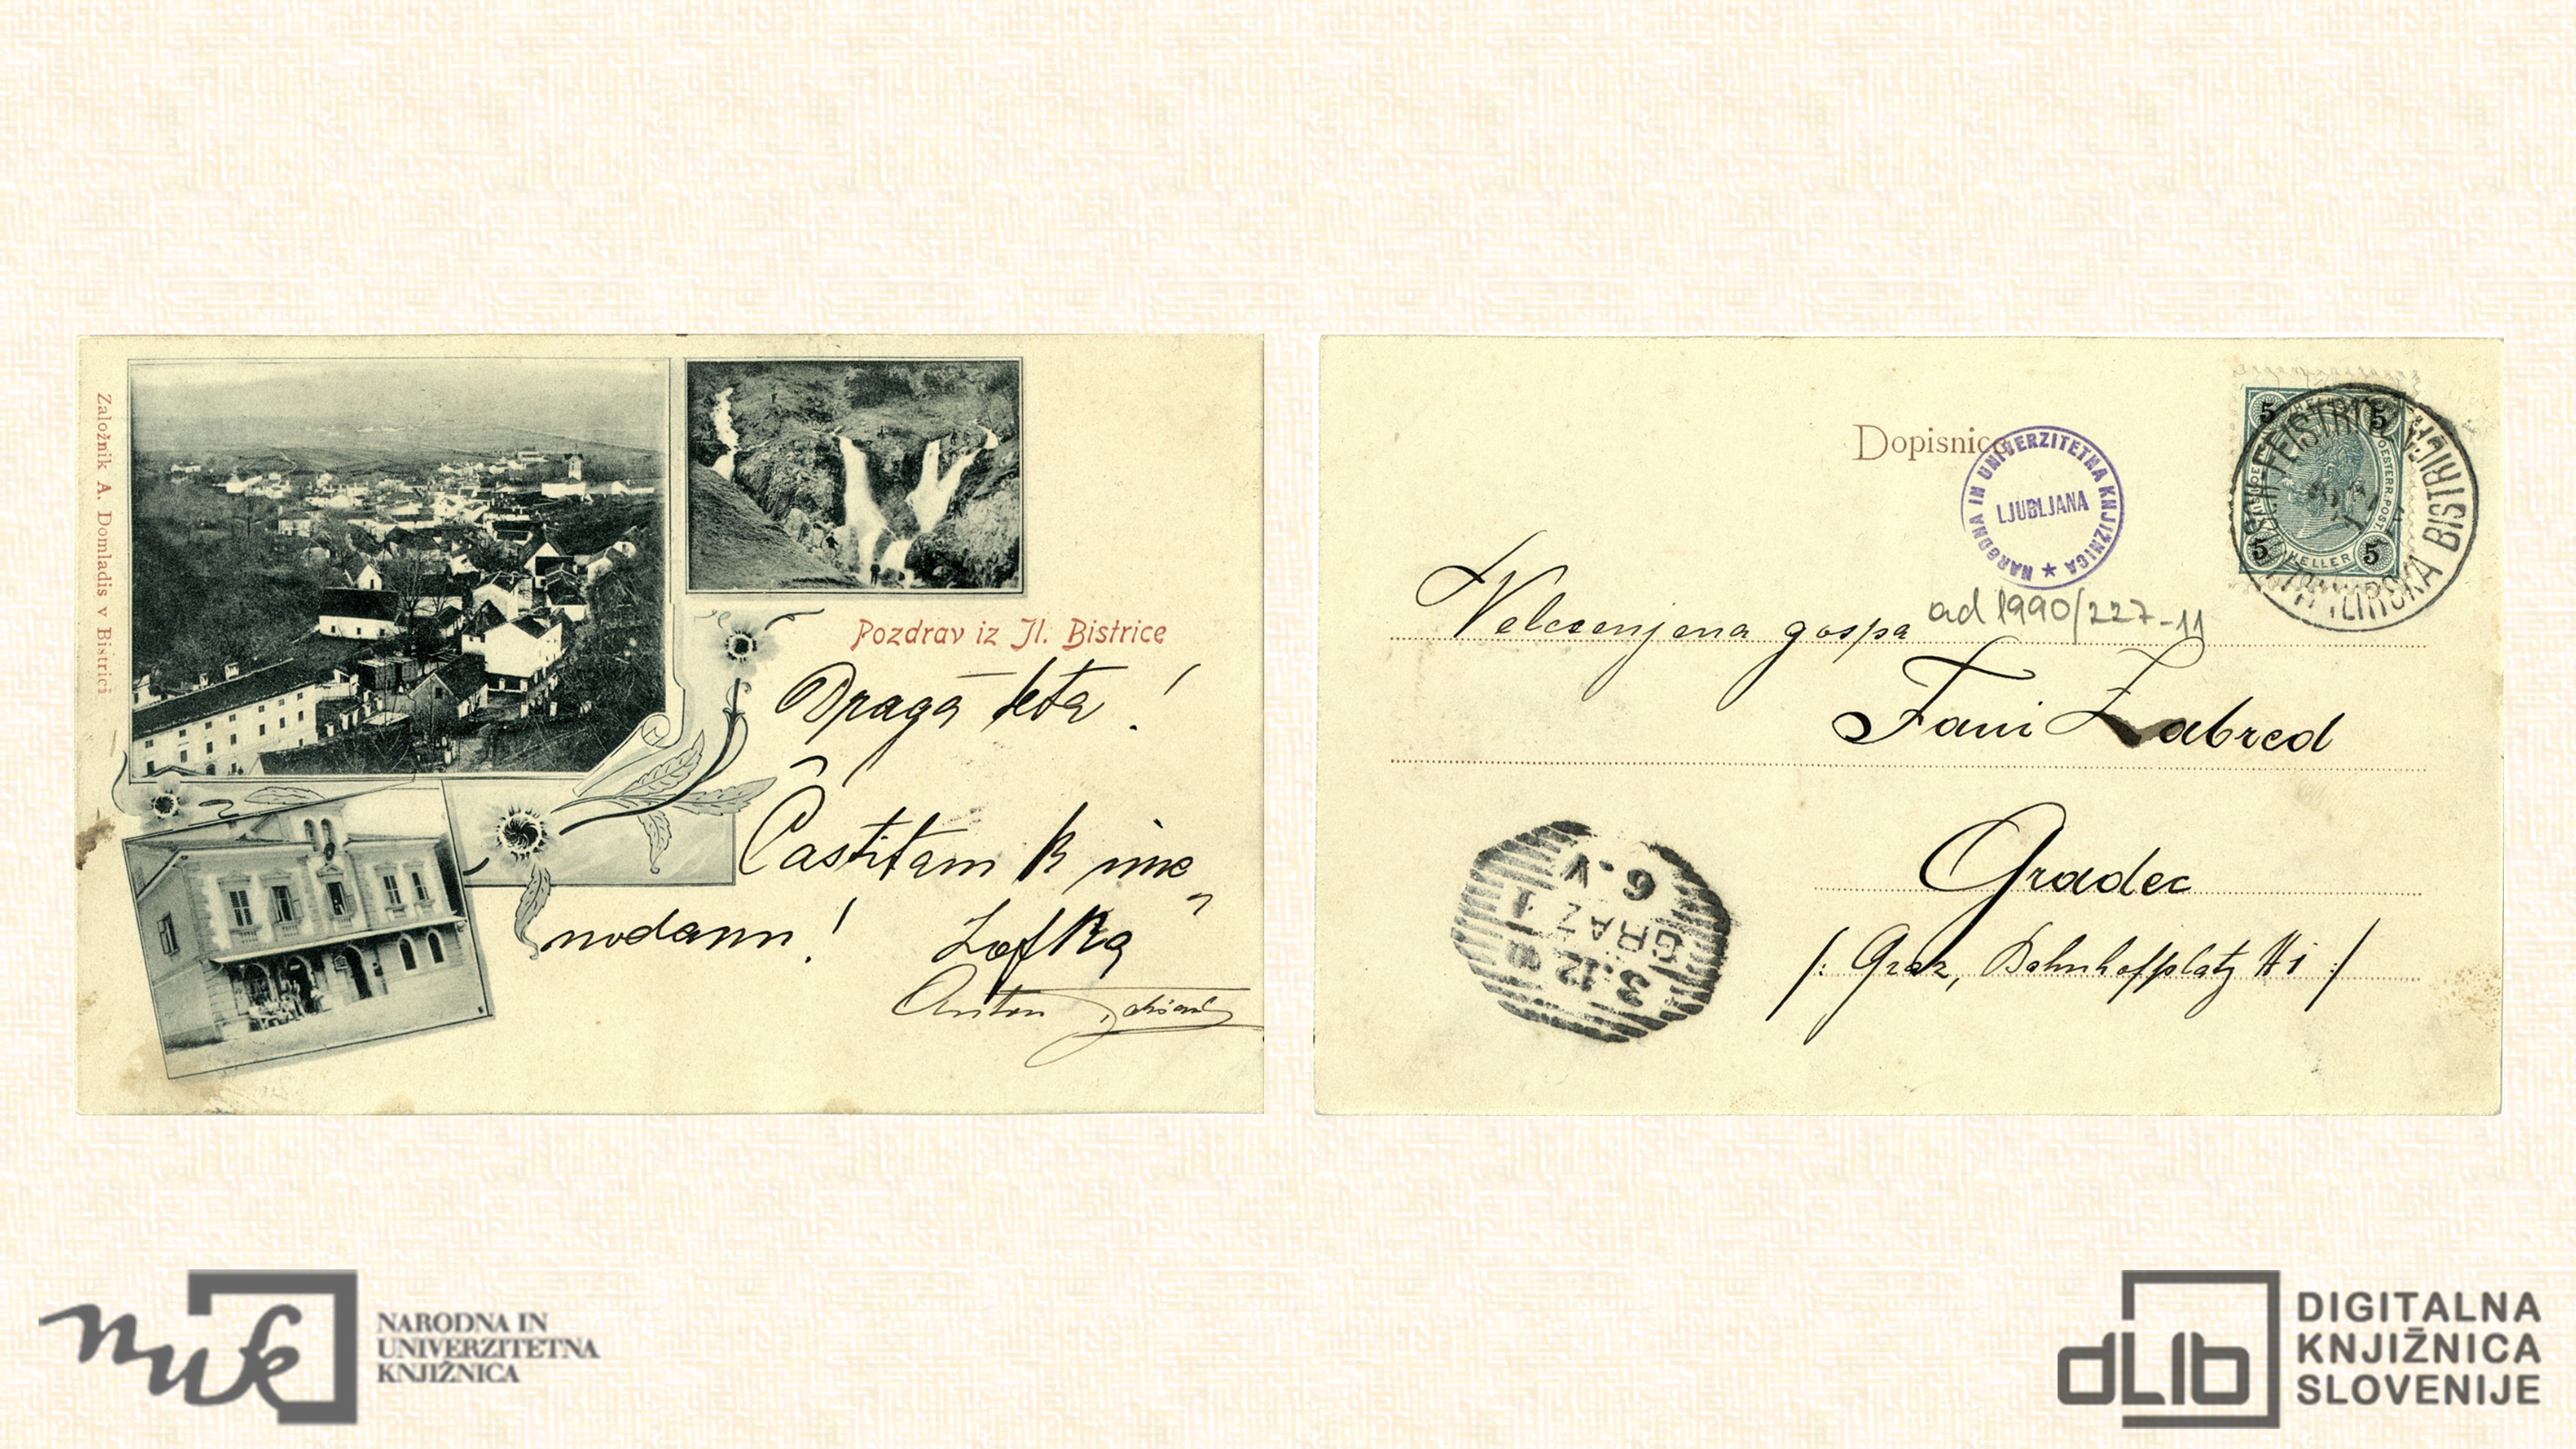 Založnik A. Domladis v Bistrici
Pozdrav iz Jl. Bistrice
Draga teta!
Častitam k ime„
nodanu! Zofka
Anton
Dopisnica
NARODNA IN UNIVERZITETNA KNJIŽNICA ★
LJUBLJANA
5 5
5 HELLER 5
OESTERR. POST.
FEISTRITZ
ILIRSKA BISTRICA
ad 1990/227-11
Velecenjena gospa
Fani Zabred
Gradec
/: Graz, Bahnhofplatz #1 :/
3.12
GRAZ 1
6.V
nuk
NARODNA IN
UNIVERZITETNA
KNJIŽNICA
dLib
DIGITALNA
KNJIŽNICA
SLOVENIJE